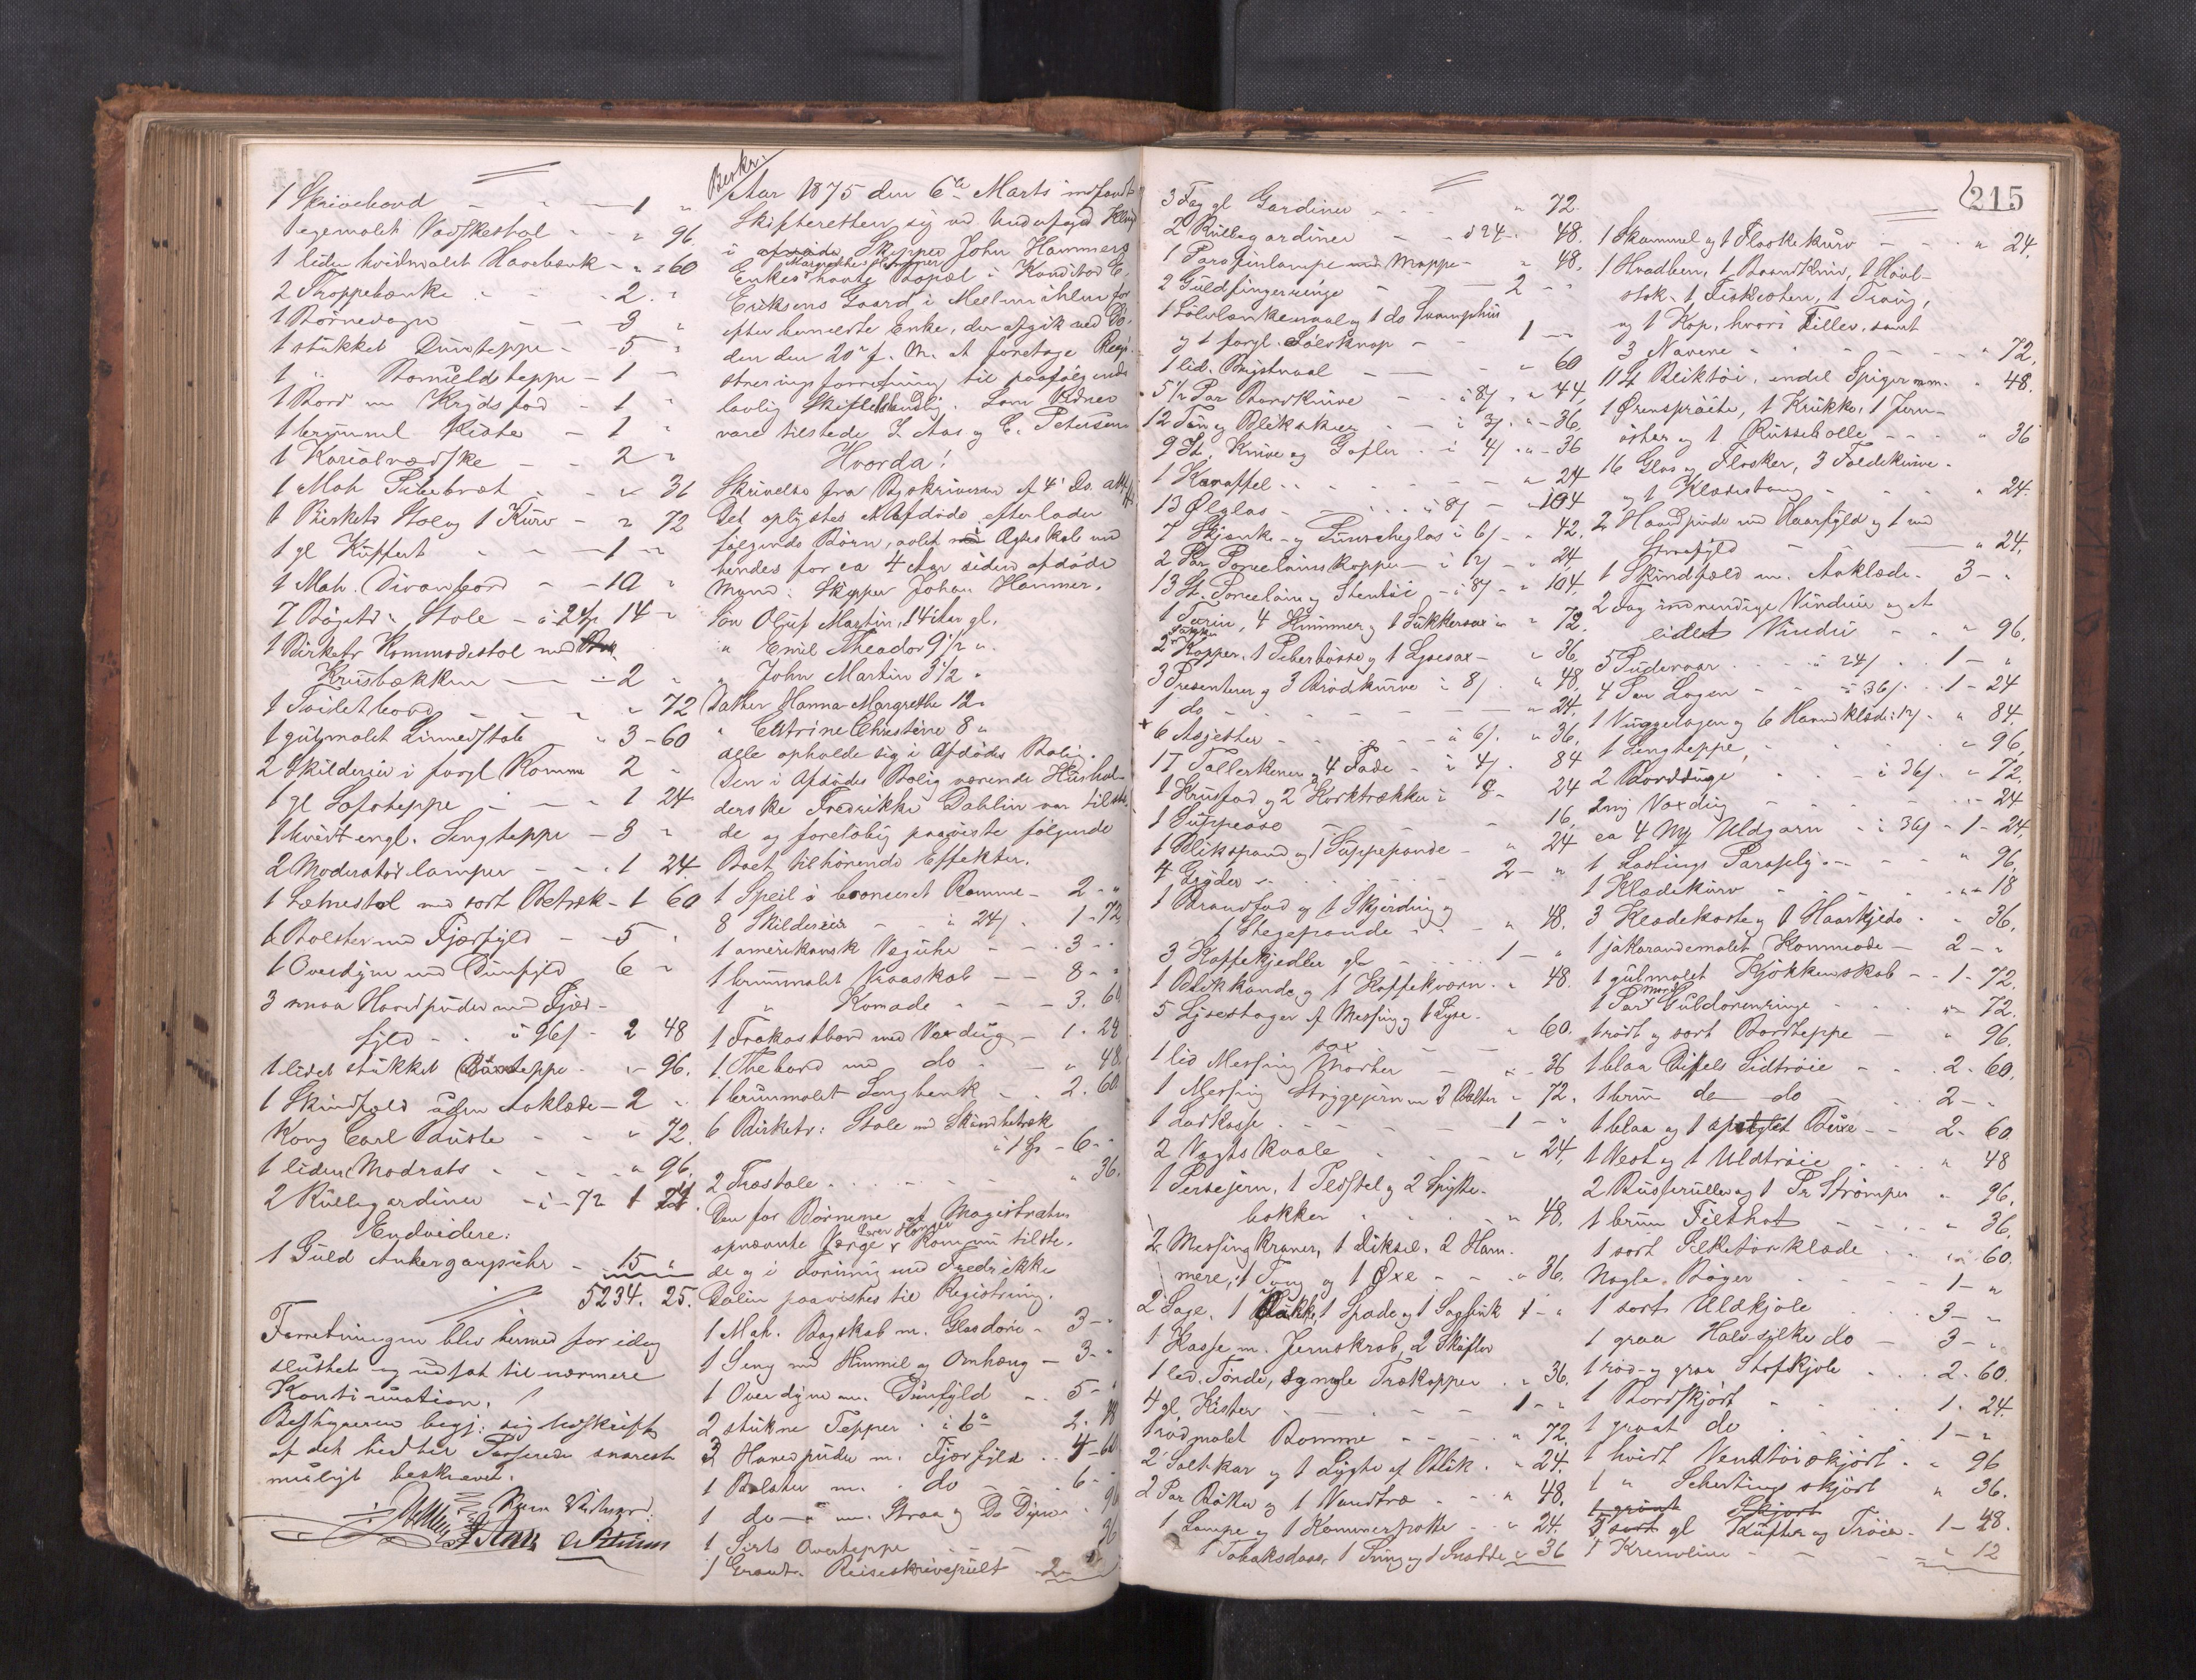 1 Skrivebord - - - 1 "
1 egemalet Vadskestol - - " 96.
1 liden hvidmalet Havebænk - " 60
2 Stoppebænke - - - 2 "
1 Børnevogn - - 3 "
1 stükket Dünteppe - - 5 "
1 " Bomüldsteppe - 1 "
1 Bord m Krydsfod - 1 "
1 brünmal Kiste - 1 "
1 Kariolvadske - - 2 "
1 Mah Pibebræt - - " 36
1 Birketr Stol og 1 Kürv - " 72
1 gl Küffert - - - 1 "
1 Mah. Divanbord - - 10 "
7 Bøgetr. Stole - à 2 Sp 14 "
1 Birketr Kommodestol med
Krüsbækken - - 2 "
1 Toiletbord - - - " 72
1 gülmalet Linnedstol " 3-60
2 Skilderier i forgl Ramme 2 "
1 gl Sofateppe - - - 1 24
1 hvidt engl. Sengteppe - 3 "
2 Moderatørlamper - - 1 24
1 Lænestol med sort Betræk - 1 60
1 Bolster med Fjærfyld - - 5 "
1 Overdyne med Dünfyld 6 "
3 smaa Hovedpüder med Fjær-
fyld - - à 96/ - 2 48
1 lidet stükket Barneteppe - - 96.
1 Skindfeld üden Aaklæde - 2 "
Kong Carl Büste - - " 72.
1 liden Madrats - - - " 96.
2 Rüllegardiner - à - 72 1 24
Endvidere:
1 Güld Ankergangsühr - 15 "
5234. 25.
Forretningen blev hermed for idag
slüttet og üdsat til nærmere
Kontinüation.
Bestyreren begj: sig Udskrift
af det hidtil Passerede snarest
müligt beskrevet.
Beskr.
Aar 1875 den 6te Marts indfandt
Skifteretten sig ved Underfoged
i afdøde Skipper John Hammers
Enkes Margrethe Hammer havte Bopæl i Konditor E.
Eriksens Gaard i Mellemihlen for
efter benævnte Enke, der afgik ved Dø-
den den 20de f. M. at foretage Regi-
streringsforretning til paafølgende
lovlig Skiftebehandlg. Som Vidner
vare tilstede J. Aas og C. Petersen
Hvorda!
Skrivelse fra Byskriveren af 4de ds. 
Det oplystes at Afdøde efterlader
følgende Børn, avlet i Ægteskab med
hendes for ca 4 Aar siden afdøde
Mand: Skipper Johan Hammer.
Søn Oluf Martin, 14 Aar gl,
" Emil Theodor 9 1/2 "
" John Martin 3 1/2 "
Datter Hanna Margrethe 12 "
" Catrine Christine 8 "
alle opholde sig i Afdødes Bolig.
Den i Afdødes Bolig værende Hüshol-
derske Fredrikke Dahlin var tilste-
de og foreløbig paaviste følgende
Boet tilhørende Effekter.
1 Speil i bronceret Ramme - 2 - "
8 Skilderier - - à 24/ - 1-72
1 amerikansk Væguhr - - 3 - "
1 brünmalet Vraaskab - - 8 - "
1 " Komode - - - 3. 60
1 Frokostbord med Voxdüg - 1. 24
1 Thebord med do - " 48
1 brünmalet Sengbenk - - 2. 60.
6 Birketr: Stole m Skindbetræk
à 1 Sp - 6 - "
2 Træstole - - - " 36.
Den for Børnene af Magistraten
opnævnte Værge kom nü tilste-
de og i Forening med Fredrikke
Dalin paavistes til Registrering.
1 Mah. Bogskab m. Glasdøre - 3 - "
1 Seng med Himmel og Omhæng - 3 - "
1 Overdyne m. Dünfyld - 5 - "
2 stükne Tepper - - 2. 48
3 Hovedpüder m. Fjærfyld - - 4-60
1 Bolster m. do - - - 6 - "
1 do - " m. Straa og Do Dyne - 96
1 Sirts Overteppe - - - 36
1 Reiseskrivepült - 2 - "
3 Fag gl Gardiner - - " 72.
2 Rüllegardiner - - à 24 - 48.
1 Parafinlampe med Kuppel - " 48.
2 Güldfingerringe - - 2 - "
1 Sølvlænkenaal og 1 do Svamphüs
og 1 forgl. Sølvknap - - 1 - "
1 lid. Brystnaal - - - " 60
5 1/2 Par Bordknive - - à 8/ " 44.
12 Tin og Blikskeer - - à 3/ " 36.
9 St. Knive og Gafler - à 4/ " 36
1 Karaffel - - - - " 24
13 Ølglas - - - - à 8/ - 104
7 Skjenke- og Püncheglas à 6/ - 42.
2 Par Porcelainskopper - à 12/ - 24.
13 St. Porcelain og Stentøi - à 8/ - " 104.
1 Terin, 4 Himmer og 1 Sükkersax " 72.
2 Kopper, 1 Peberbøsse og 1 Lysesax - " 36.
3 Presenterer og 3 Brødkürve à 8/. " 48.
1 do - - - - - " 24.
6 Asjetter - - - - à 6/. " 36.
17 Tallerkener og 4 Fade - à 4/. 84
1 Krusfad og 2 Korktrækker à 8 - 24
1 Süppeøse - - - - 16.
1 Blikspand og 1 Süppepande - " 24
4 Gryder - - - - 2 - "
1 Brandfad og 1 Skjørding og
1 Stegepande - - - " 48.
3 Kaffekjedler gl - - - 1 - "
1 Blikkande og 1 Kaffekværn - " 48.
5 Lysestager af Messing og 1 Lyse-
sax " 60.
1 lid Messing Morter - - " 36
1 Messing Strygejern m 2 Bolter " 72.
1 Ladkasse - - - - 1 - "
2 Vægtskaale - - - " 24.
1 Persejern, 1 Pedstel og 2 Spytte-
bakker - - - - " 48.
2 Messingkraner, 1 Diksel, 2 Ham-
mere, 1 Tang og 1 Øxe - - " 36.
2 Sage, 1 Hakke, 1 Spade og 1 1 - "
1 Kasse m. Jernskrab, 2 Sküffer
1 led. Tønde, og nogle Trækopper - " 36.
4 gl. Kister - - - 1 - "
1 rødmalet Bomme - - - " 72.
2 Saltkar og 1 Lygte af Blik - " 24.
2 Par Bøtter og 1 Vandtræ - - " 48.
1 Lampe og 1 Kammerpotte - " 24.
1 Tobaksdaase, 1 og 1 " 36
215
1 Skammel og 1 Flaskekürv - - " 24.
1 Hvadben, 1 Baandkniv, 1 Høvl-
stok, 1 1 Traüg,
og 1 Kop, hvori Filler, samt
3 Navere - - - - - " 72.
11 St Bliktøi, endel Spiger m.m. " 48.
1 Ørensprøite, 1 Krükke, 1 Jern-
øster og 1 - - " 36
16 Glas og Flasker, 3 Foldeknive
og 1 Klædestang - - - " 24.
2 Hovedpüder med Haarfyld og 1 med
Straafyld - - " 24.
1 Skindfeld m. Aaklæde - 3 - "
2 Fag indvendige Vindüer og et
lidet Vindü - - " 96.
5 Püdevaar - - à 24/ - 1 - "
4 Par Lagen - - à 36/ - 1 - 24
1 Vuggelagen og 6 Haandklæde à 12/ - " 84.
1 Sengteppe, - - - " 96.
2 Borddüge - - à 36/ - " 72.
2 ny Voxdüg - - - " 24
ca 4 My Uldgarn - à 36/ - 1 - 24.
1 Lastings Paraply - - - " 96.
1 Klædekürv - - - - " 18
3 Klædekoste og 1 Haarkjede - " 36.
1 jakarandemalet Kommode - 2 - "
1 gülmalet Kjøkkenskab - - 1 - 72.
1 Par Güldørenringe - - " 72.
1 rødt og sort Bordteppe - " 96.
1 blaa Düffels Sidtrøie - - 2. 60.
1 brün do do - - 2 - "
1 blaa og 1 spraglet Büxe - - 2. 60
1 Vest og 1 Uldtrøie - - " 48
2 Büsseruller og 1 Pr Strømper " 96.
1 brün Filthat - - - - " 36.
1 sort Silketørklæde - - " 60.
Nogle Bøger - - - - 1 - "
1 sort Uldkjole - - - 3 - "
1 graa Halvsilke do - 3 - "
1 rød og graa Stofkjole - - 2. 60.
1 Bordskjørt - - - 1. 24.
1 graat do - - - - 1 - "
1 hvidt Ventøiskjørt - " 96
1 " Schertings skjørt " 36.
1 grønt Skjørt
5 sort gl Küfter og Trøier - 1 - 48.
1 Krenoline - - - " 12